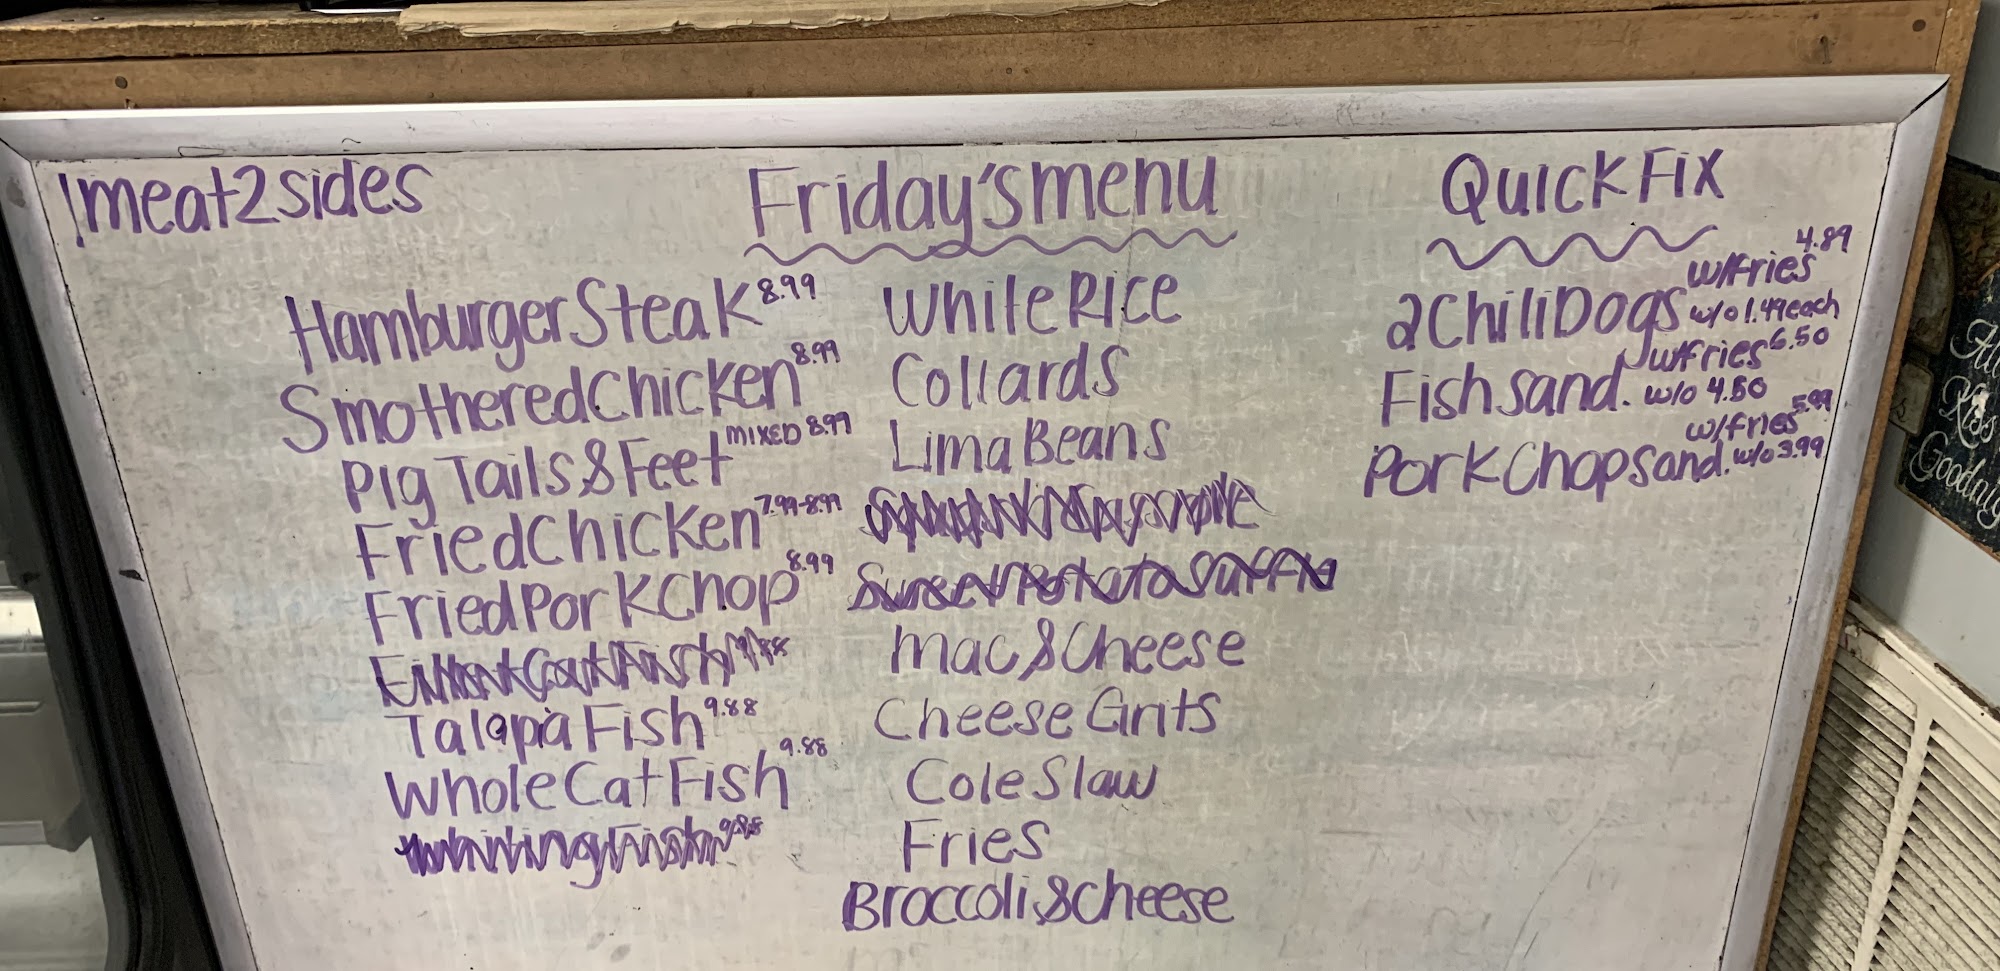 1meat2sides
Friday'smenu
HamburgerSteak 8.99
SmotheredChicken 8.99
Pig Tails&Feet MIXED 8.99
FriedChicken 7.99-8.99
FriedPorkChop 8.99
Talapia Fish 9.88
Whole CatFish 9.88
White Rice
Collards
Lima Beans
Mac&Cheese
Cheese Grits
Cole Slaw
Fries
Broccoli&cheese
Quick Fix
2ChiliDogs w/Fries 4.89
w/o 1.49each
Fish sand. w/Fries 6.50
w/o 4.50
PorkChopsand. w/fries 5.99
w/o 3.99
Kiss